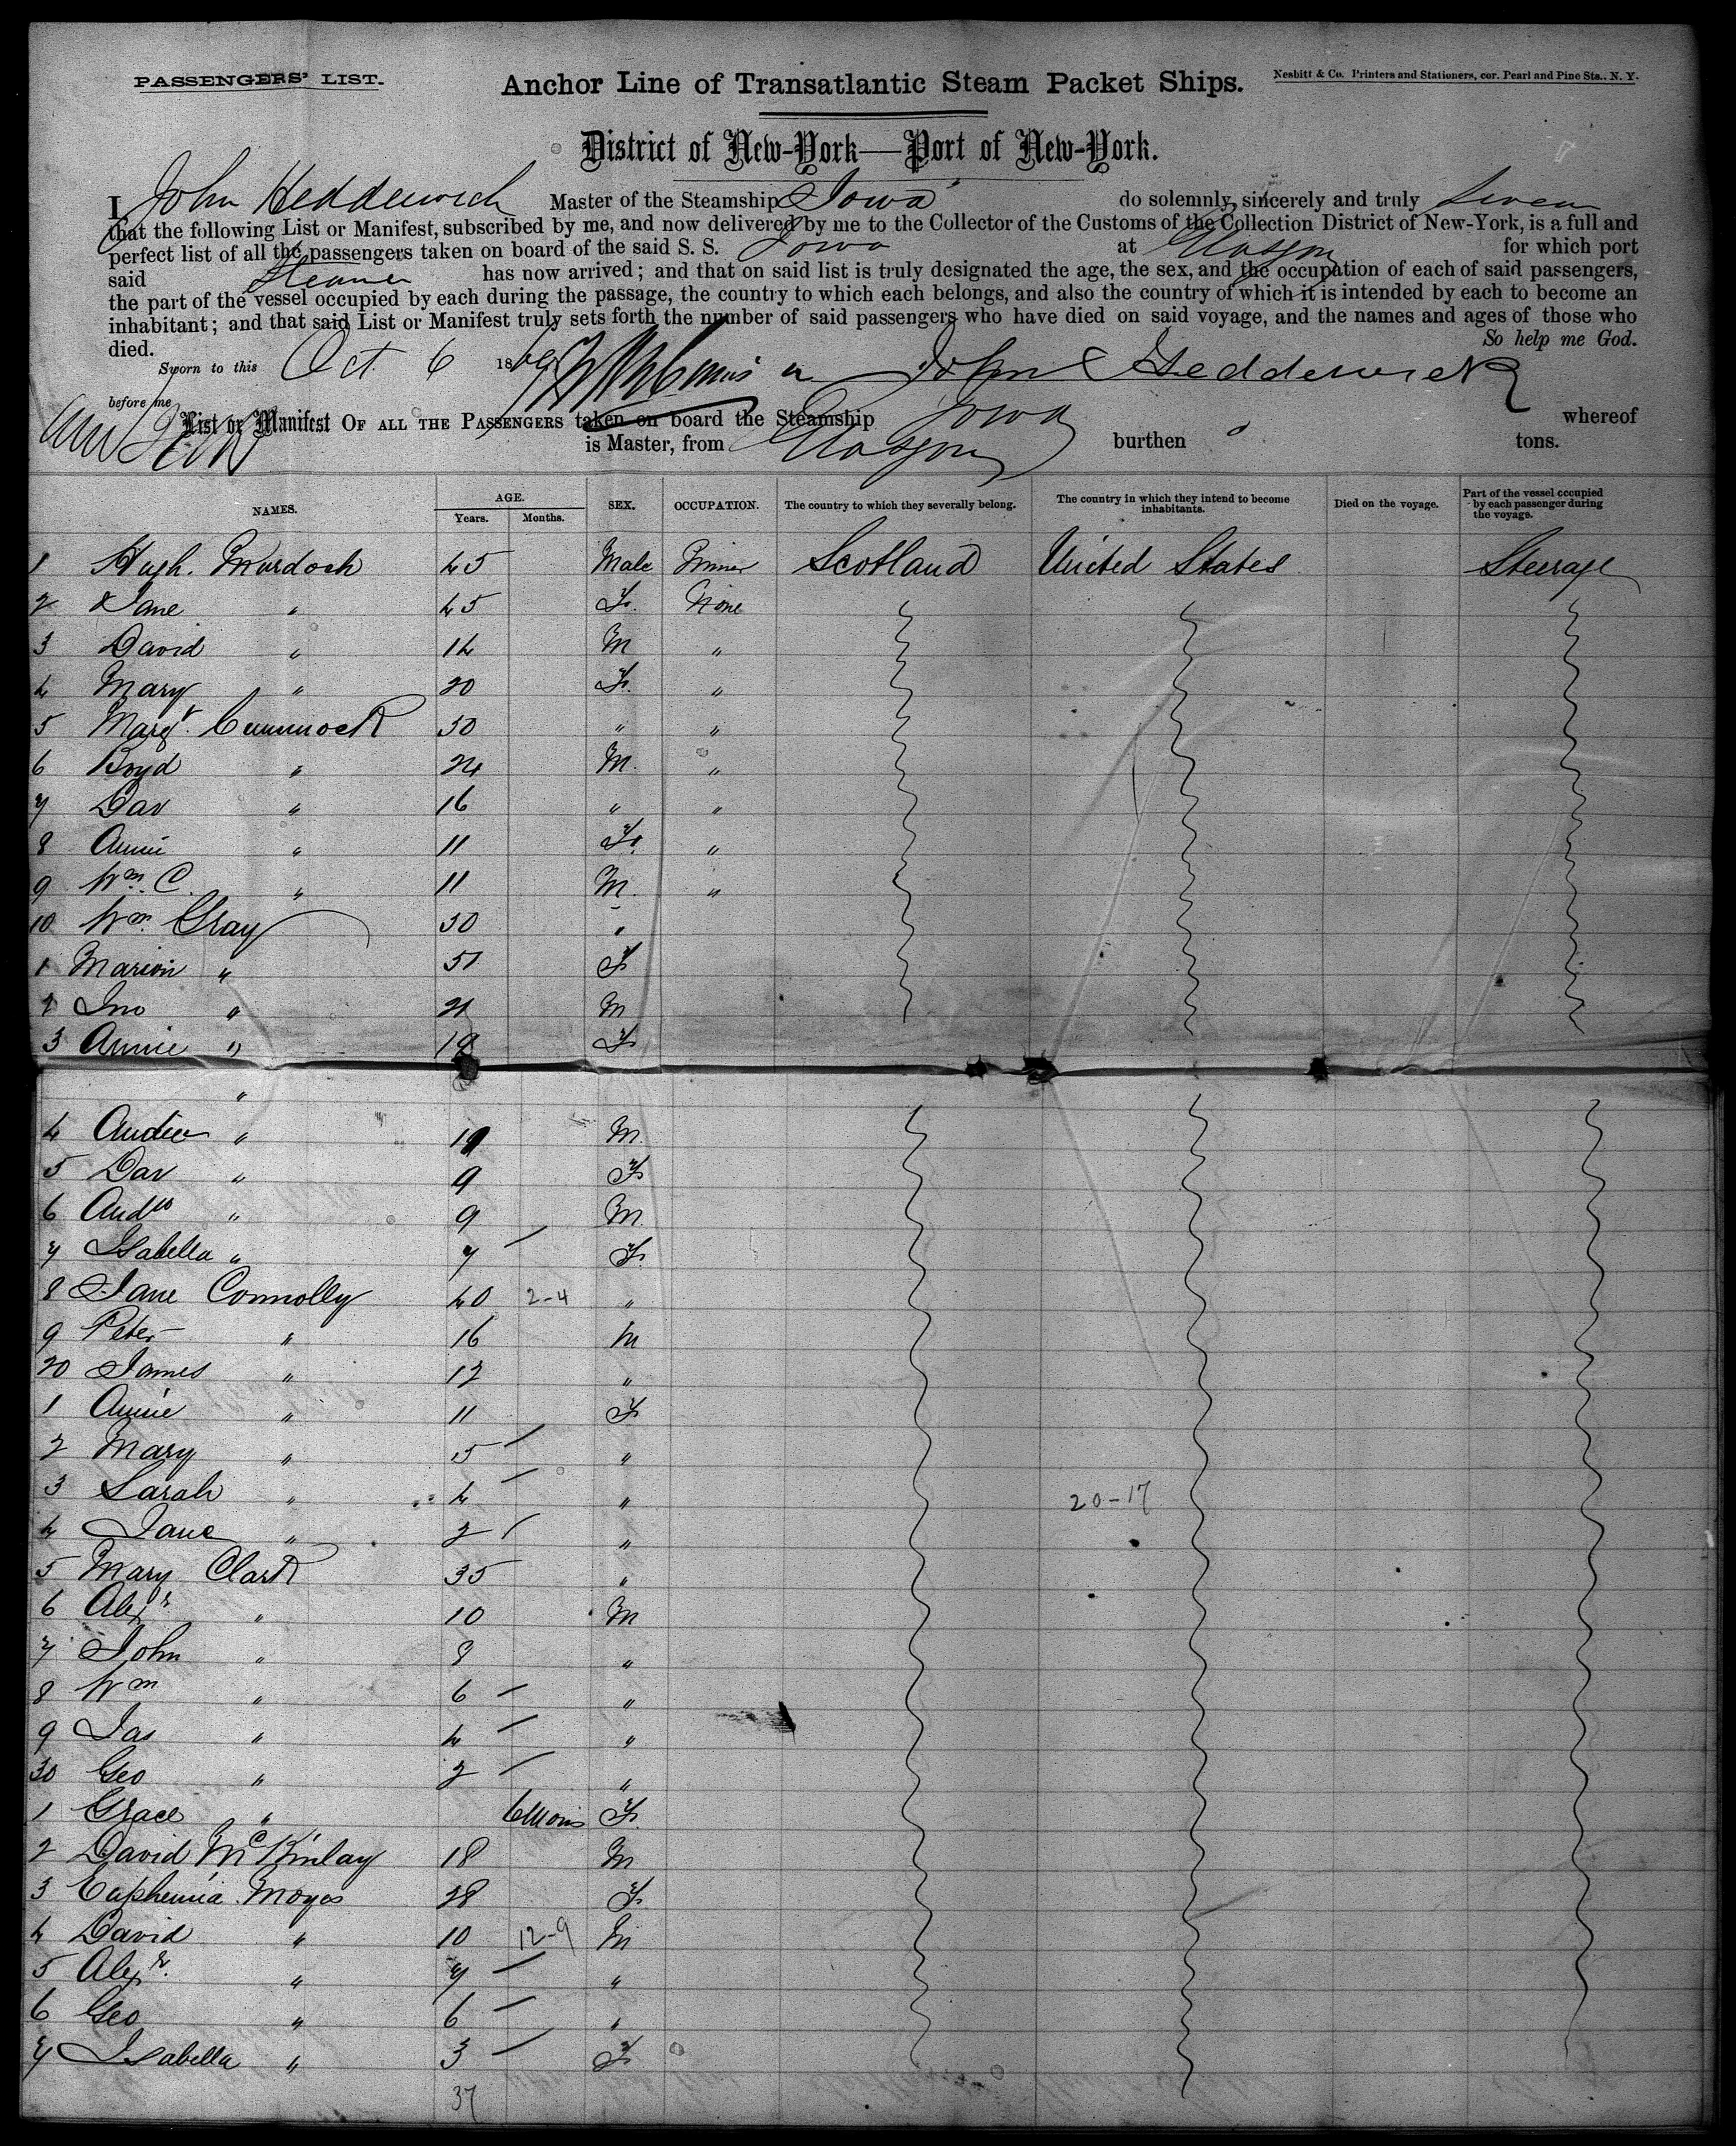 PASSENGERS' LIST.
Anchor Line of Transatlantic Steam Packet Ships.
Nesbitt & Co. Printers and Stationers, cor. Pearl and Pine Sts., N. Y.
District of New-York—Port of New-York.
I John Hedderwick Master of the Steamship Iowa do solemnly, sincerely and truly swear
that the following List or Manifest, subscribed by me, and now delivered by me to the Collector of the Customs of the Collection District of New-York, is a full and
perfect list of all the passengers taken on board of the said S. S. Iowa at Glasgow for which port
said Steamer has now arrived; and that on said list is truly designated the age, the sex, and the occupation of each of said passengers,
the part of the vessel occupied by each during the passage, the country to which each belongs, and also the country of which it is intended by each to become an
inhabitant; and that said List or Manifest truly sets forth the number of said passengers who have died on said voyage, and the names and ages of those who
died. So help me God.
Sworn to this Oct. 6 1869 John Hedderwick
before me
List or Manifest OF ALL THE PASSENGERS taken on board the Steamship Iowa whereof
is Master, from Glasgow burthen tons.
NAMES. AGE. Years. Months. SEX. OCCUPATION. The country to which they severally belong. The country in which they intend to become inhabitants. Died on the voyage. Part of the vessel occupied by each passenger during the voyage.
1 Hugh. Murdoch 45 Male Scotland United States Steerage
2 Jane " 45 F. None
3 David " 14 M "
4 Mary " 20 F. "
5 Margt. Cummock 50 " "
6 Boyd " 24 M. "
7 Dav " 16 " "
8 Annie " 11 F. "
9 Wm. C. " 11 M. "
10 Wm. Gray 50 "
1 Marion " 51 F
2 Jno " 21 M
3 Annie " 19 F
"
4 Andw " M.
5 Dav " 9 F
6 Andw " 9 M.
7 Isabella " 7 F.
8 Jane Connolly 40 2-4 "
9 Peter " 16 M
20 James " 12 "
1 Annie " 11 F
2 Mary " 5 "
3 Sarah " 4 " 20-17
4 Jane " 2 "
5 Mary Clark 35 "
6 Alexr " 10 M
7 John " 8 "
8 Wm " 6 "
9 Jas " 4 "
30 Geo " 2 "
1 Grace " 6 Mons F.
2 David McKinlay 18 M
3 Euphemia Moyes 28 F.
4 David " 10 12-9 M
5 Alexr. " 7 "
6 Geo " 6 "
7 Isabella " 3 F
37